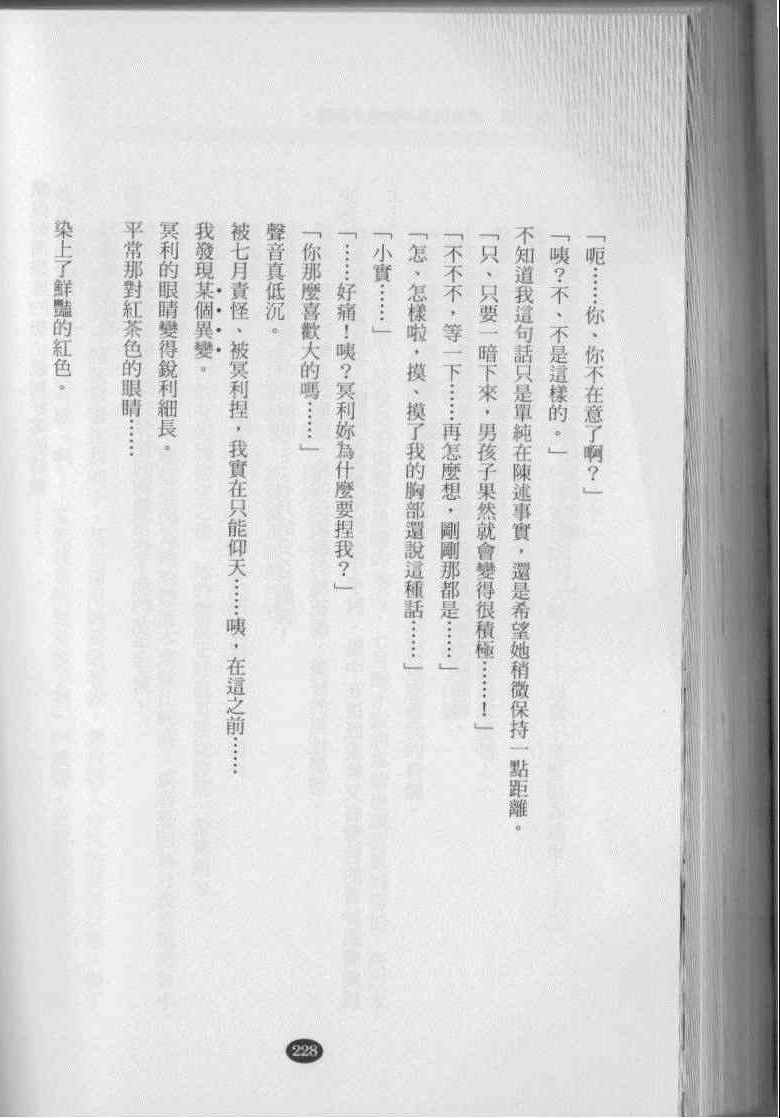 「呃……你、你不在意了啊？」
「咦？不、不是這樣的。」
不知道我這句話只是單純在陳述事實，還是希望她稍微保持一點距離。
「只、只要一暗下來，男孩子果然就會變得很積極……！」
「不不不，等一下……再怎麼想，剛剛那都是……」
「怎、怎樣啦，摸、摸了我的胸部還說這種話……」
「小實……」
「……好痛！咦？冥利妳為什麼要捏我？」
「你那麼喜歡大的嗎……」
聲音真低沉。
被七月責怪、被冥利捏，我實在只能仰天……咦，在這之前……
我發現某個異變。
冥利的眼睛變得銳利細長。
平常那對紅茶色的眼睛……
染上了鮮豔的紅色。
228